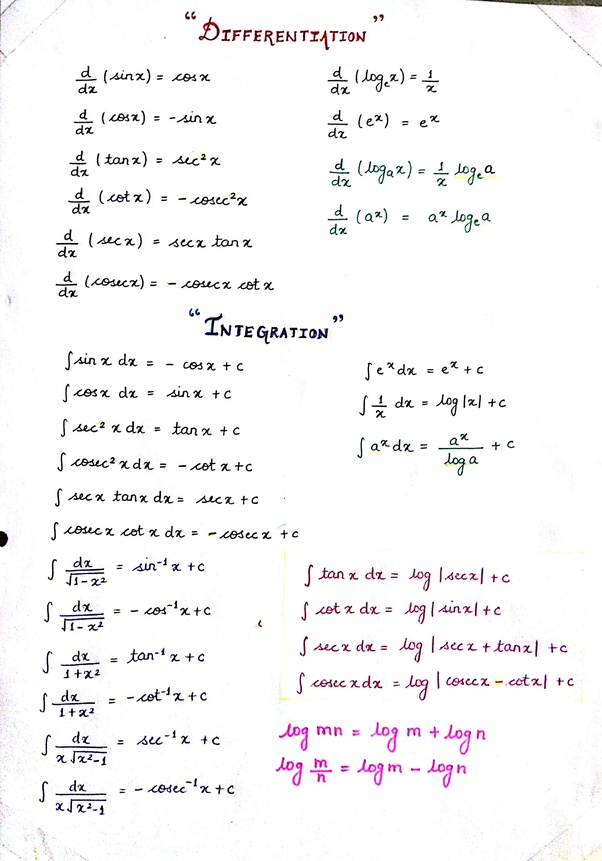 “DIFFERENTIATION”
d/dx (sin x) = cos x
d/dx (cos x) = - sin x
d/dx (tan x) = sec² x
d/dx (cot x) = - cosec² x
d/dx (sec x) = sec x tan x
d/dx (cosec x) = - cosec x cot x
d/dx (logₑ x) = 1/x
d/dx (eˣ) = eˣ
d/dx (logₐ x) = 1/x logₑ a
d/dx (aˣ) = aˣ logₑ a
“INTEGRATION”
∫ sin x dx = - cos x + c
∫ cos x dx = sin x + c
∫ sec² x dx = tan x + c
∫ cosec² x dx = - cot x + c
∫ sec x tan x dx = sec x + c
∫ cosec x cot x dx = - cosec x + c
∫ dx/√(1-x²) = sin⁻¹ x + c
∫ dx/√(1-x²) = - cos⁻¹ x + c
∫ dx/(1+x²) = tan⁻¹ x + c
∫ dx/(1+x²) = - cot⁻¹ x + c
∫ dx/(x√(x²-1)) = sec⁻¹ x + c
∫ dx/(x√(x²-1)) = - cosec⁻¹ x + c
∫ eˣ dx = eˣ + c
∫ 1/x dx = log |x| + c
∫ aˣ dx = aˣ/log a + c
∫ tan x dx = log |sec x| + c
∫ cot x dx = log | sin x | + c
∫ sec x dx = log | sec x + tan x | + c
∫ cosec x dx = log | cosec x - cot x | + c
log mn = log m + log n
log m/n = log m - log n